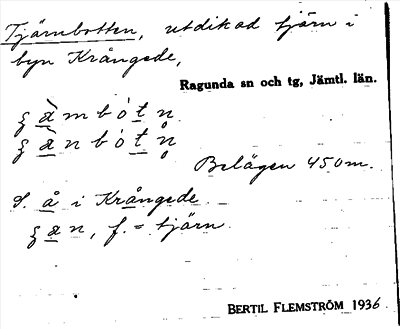 Tjärnbotten, utdikad tjärn i
byn Krångede,
Ragunda sn och tg, Jämtl. län.
Belägen 450m.
S. å i Krångede
f. = tjärn
BERTIL FLEMSTRÖM 1936.